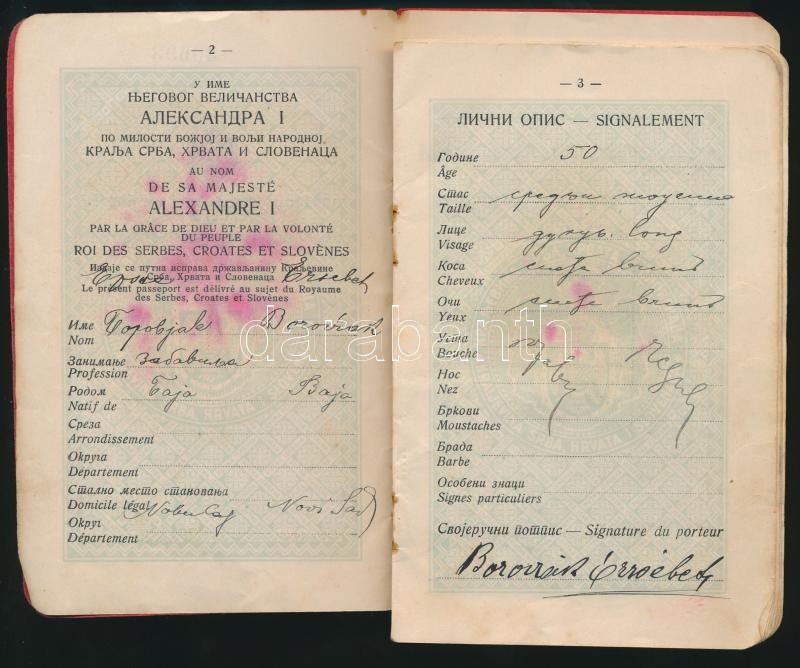 — 2 —
У ИМЕ
ЊЕГОВОГ ВЕЛИЧАНСТВА
АЛЕКСАНДРА I
ПО МИЛОСТИ БОЖЈОЈ И ВОЉИ НАРОДНОЈ,
КРАЉА СРБА, ХРВАТА И СЛОВЕНАЦА
AU NOM
DE SA MAJESTÉ
ALEXANDRE I
PAR LA GRÂCE DE DIEU ET PAR LA VOLONTÉ
DU PEUPLE
ROI DES SERBES, CROATES ET SLOVÈNES
Издаје се путна исправа држављанину Краљевине
Срба, Хрвата и Словенаца
Ersebet
Le présent passeport est délivré au sujet du Royaume
des Serbes, Croates et Slovènes
Име Боровјак Borovják
Nom
Занимање забавиља
Profession
Родом Баја Baja
Natif de
Среза
Arrondissement
Округа
Département
Стално место становања
Domicile légal Нови Сад Novi Sad
Округ
Département
— 3 —
ЛИЧНИ ОПИС — SIGNALEMENT
Године 50
Âge
Стас средњи
Taille
Лице дугуљ. long
Visage
Коса смеђе brunt
Cheveux
Очи смеђе brunt
Yeux
Уста
Bouche
Нос
Nez
Бркови
Moustaches
Брада
Barbe
Особени знаци
Signes particuliers
Својеручни потпис — Signature du porteur
Borovják Erzsébet
darabanth